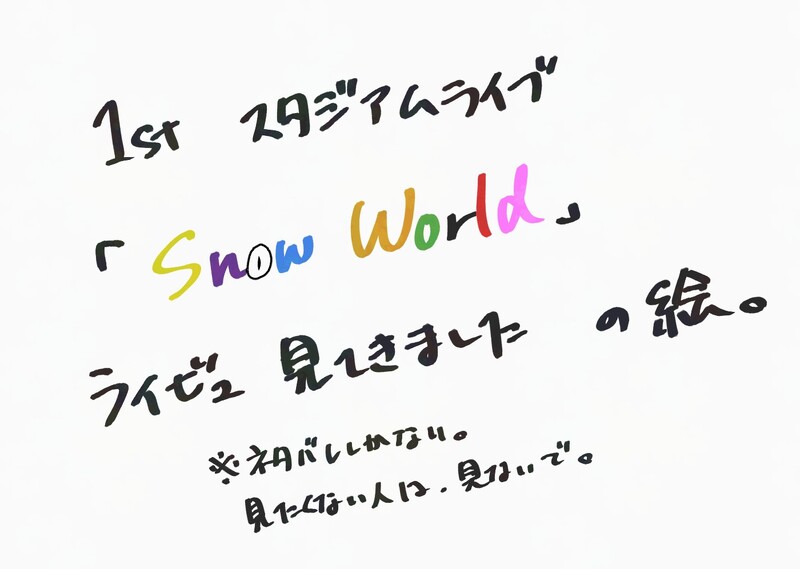 1st スタジアムライブ
「Snow World」
ライビュ 見てきました の絵。
※ネタバレしかない。
見たくない人は、見ないで。